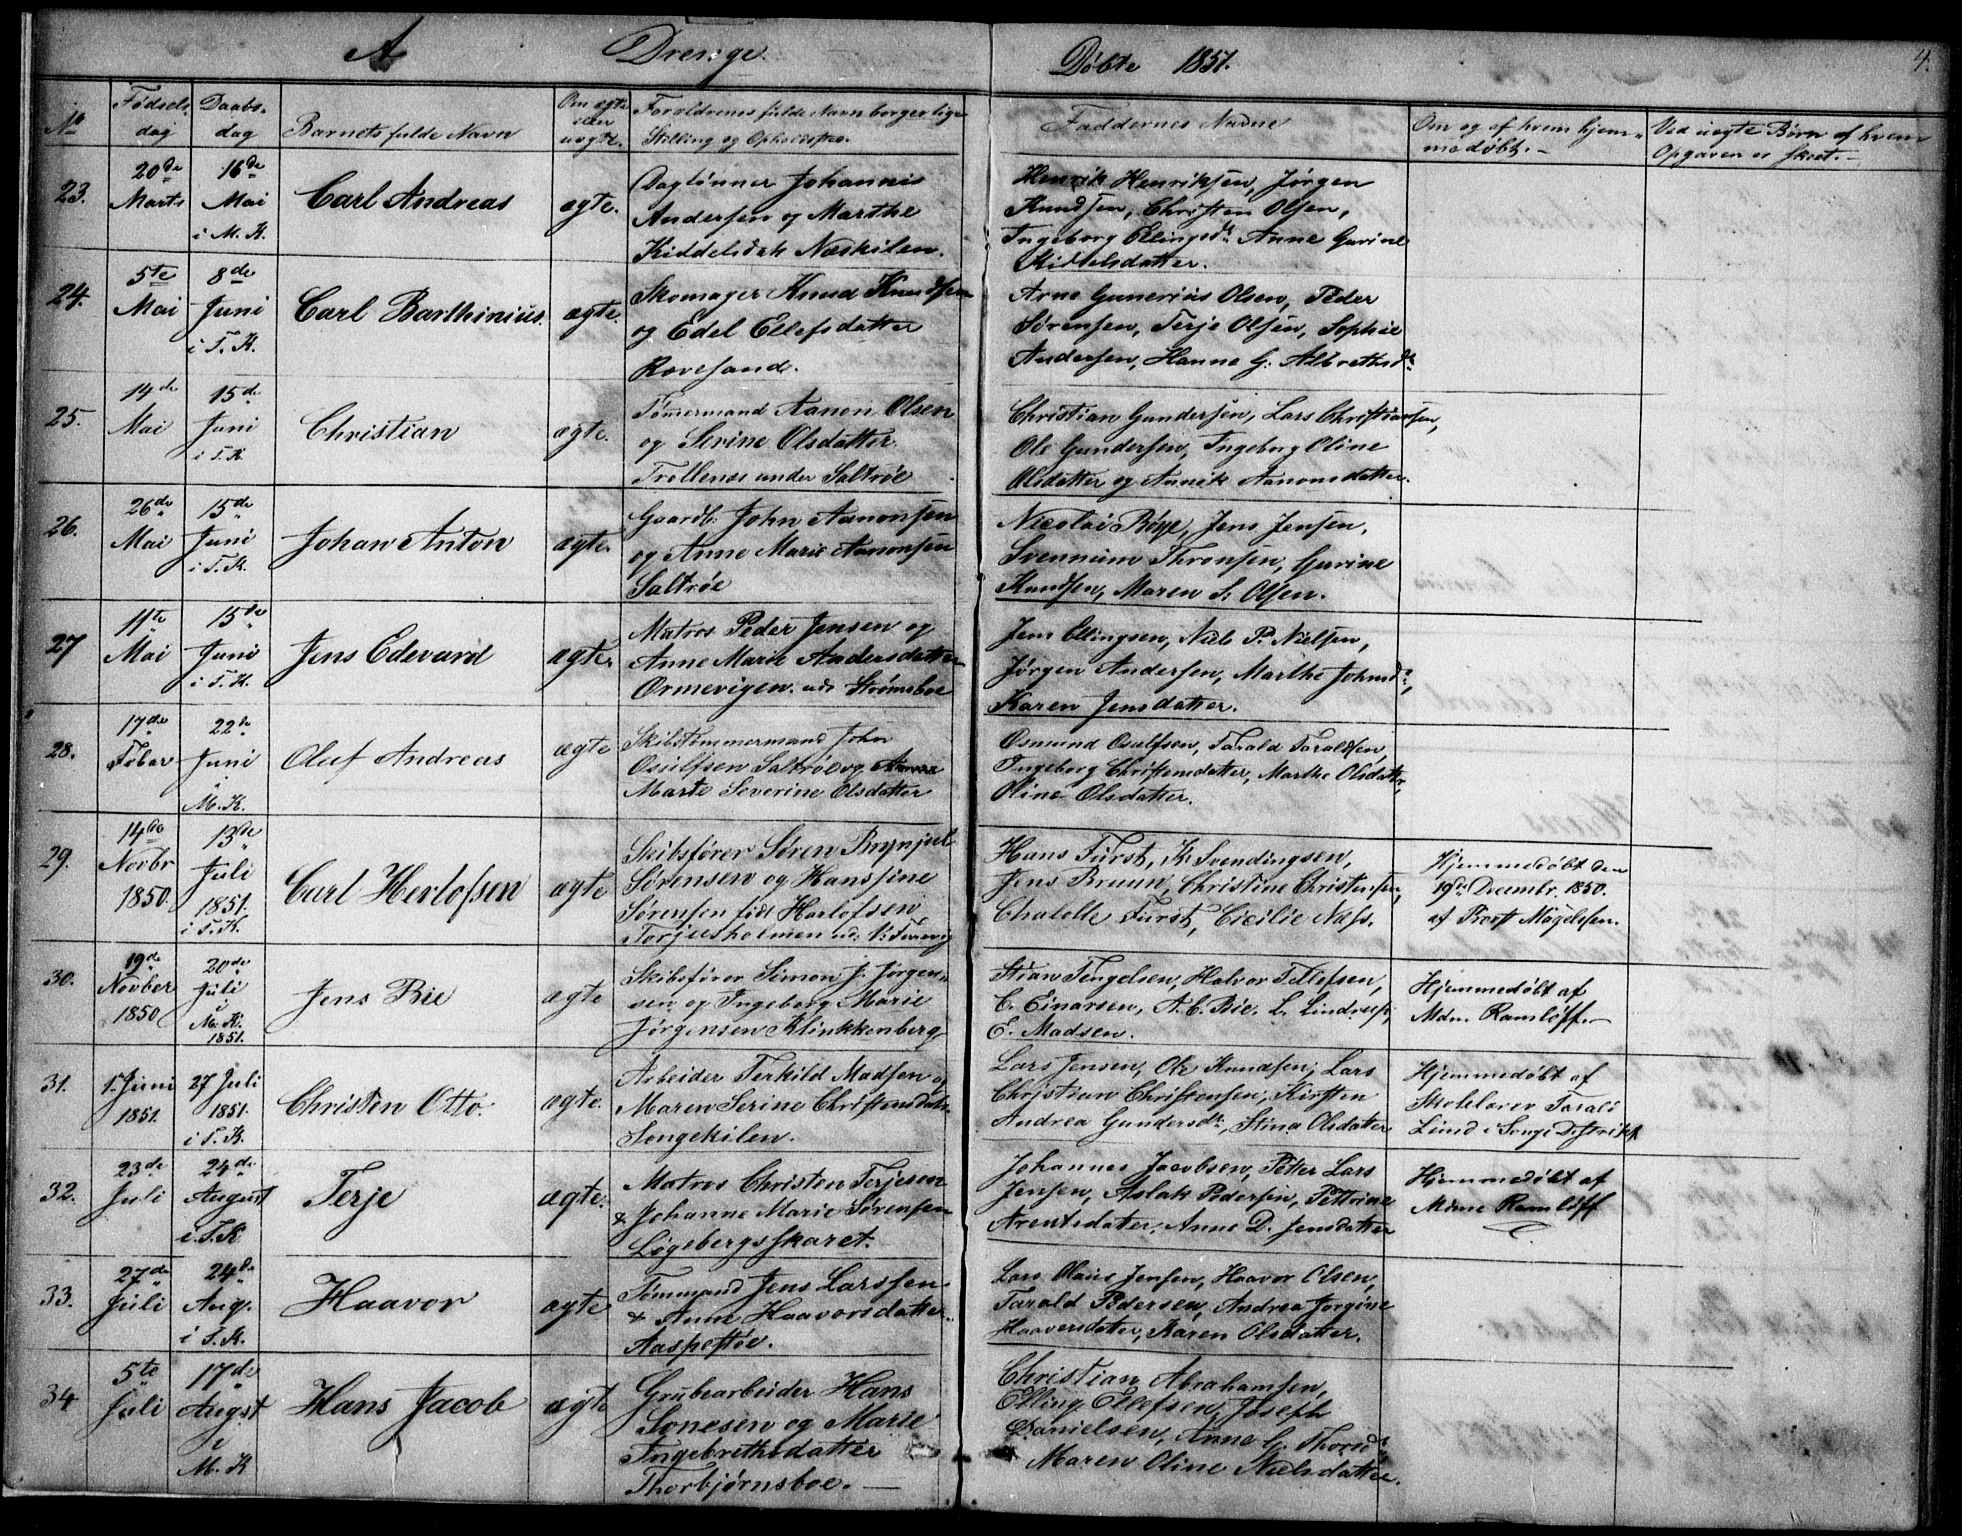 A Drenge. Døbte 1851. 4.
No Fødsels dag Daabs dag Barnets fulde Navn Om ægte eller uægte. Forældrenes fulde Navn borgerlige Stilling og Opholdsted. Faddernes Navne Om og af hvem hjemmedøbt. Ved uægte Børn af hvem Opgaven er skeet.
23. 20de Marts 16de Mai i M. K. Carl Andreas ægte.
Daglønner Johannis
Andersen og Marthe
Kiddelsdatr Næskilen.
Henrik Henriksen, Jørgen
Knudsen, Christen Olsen,
Ingeborg Ellingsdr Anne Gurine
Kittelsdatter.
24. 5te Mai 8de Juni i T. K. Carl Barthinius. ægte.
Skomager Knud Knudsen
og Edel Ellefsdatter
Rævesand.
Arne Gunerius Olsen, Peder
Sørensen, Terje Olsen, Sophie
Andersen, Hanne G. Albrethsdr
25. 14de Mai 15de Juni i T. K. Christian ægte.
Tømermand Aanon Olsen
og Serine Olsdatter.
Trollenæs under Saltrøe
Christian Gundersen, Lars Christiansen,
Ole Gundersen, Ingeborg Oline
Olsdatter og Annik Aanonsdatter.
26. 26de Mai 15de Juni i T. K. Johan Anton ægte.
Gaardb. John Aanonsen
og Anne Marie Aanonsen
Saltrøe
Nicolai Bøye, Jens Jensen,
Svennum Thronsen, Gurine
Knudsen, Maren S. Olsen.
27 11te Mai 15de Juni i T. K. Jens Edevard ægte.
Matros Peder Jensen og
Anne Marie Andersdatter
Ormevigen. und. Strømsboe
Jens Ellingsen, Niels P. Nielsen,
Jørgen Andersen, Marthe Johnsdr,
Karen Jensdatter.
28. 17de Febar 22de Juni i M. K. Oluf Andreas ægte
Skibstømmermand John
Osulfsen Saltrøe og
Marte Severine Olsdatter
Osmund Osulfsen, Tarald Taraldsen,
Ingeborg Christensdatter, Marthe Olsdatter,
Oline Olsdatter.
29. 14de Novbr 1850. 13de Juli 1851. i T. K. Carl Herlofsen ægte
Skibsfører Søren Brynjul
Sørensen og Hansine
Sørensen født Harlofsen
Torjusholmen
Hans Fürst, K. Svendingsen,
Jens Bruun, Christine Christensen,
Fürst, Cicilie Næss.
Hjemmedøbt den
19de Decembr 1850.
af Provst Magelssen.
30. 19de Novber 1850 20de Juli i M. K. 1851. Jens Bie ægte
Skibsfører Simon J. Jørgen-
sen og Ingeborg Marie
Jørgensen Klinkkenberg
Stian Tengelsen, Halvor Tellefsen,
C. Einarsen, A. C. Bie, L. Lindrup,
E. Madsen.
Hjemmedøbt af
Mdm. Ramløff.
31. 1. Juni 1851. 27 Juli 1851. i T. K. Christen Otto. ægte.
Arbeider Terkild Madsen og
Maren Serine Christensdatr
Songekilen.
Lars Jensen, Ole Knudsen, Lars
Christian Christensen, Kirsten
Andrea Gundersdr, Stina Olsdatter
Hjemmedøbt af
Skolelærer Tarald
Lund i Songe Distrikt
32. 23de Juli 24de August i T. K. Terje ægte.
Matros Christen Terjesen
& Johanne Marie Sørensen
Løgebergsskaret.
Johannes Jacobsen, Peter Lars
Jensen, Aslak Pedersen, Pettrine
Arentsdater, Anne D. Jensdatter
Hjemmedøbt af
Mdme Ramløff
33. 27de Juli 24de Aug. i T. K. Haavor ægte
Tømmand Jens Larssen
& Anne Haavorsdatter
Aaspestøe.
Lars Olaus Jensen, Haavor Olsen,
Tarald Pedersen, Andrea Jørgine
Haaversdatter, Karen Olsdatter.
34 5te Juli 17de Augst i M. K Hans Jacob ægte
Grubearbeider Hans
Sonesen og Marie
Ingebrethsdatter
Thorbjørnsboe.
Christian Abrahamsen,
Elling Ellefsen, Joseph
Danielsen, Anne G. Thorsdr,
Maren Oline Nielsdatter.